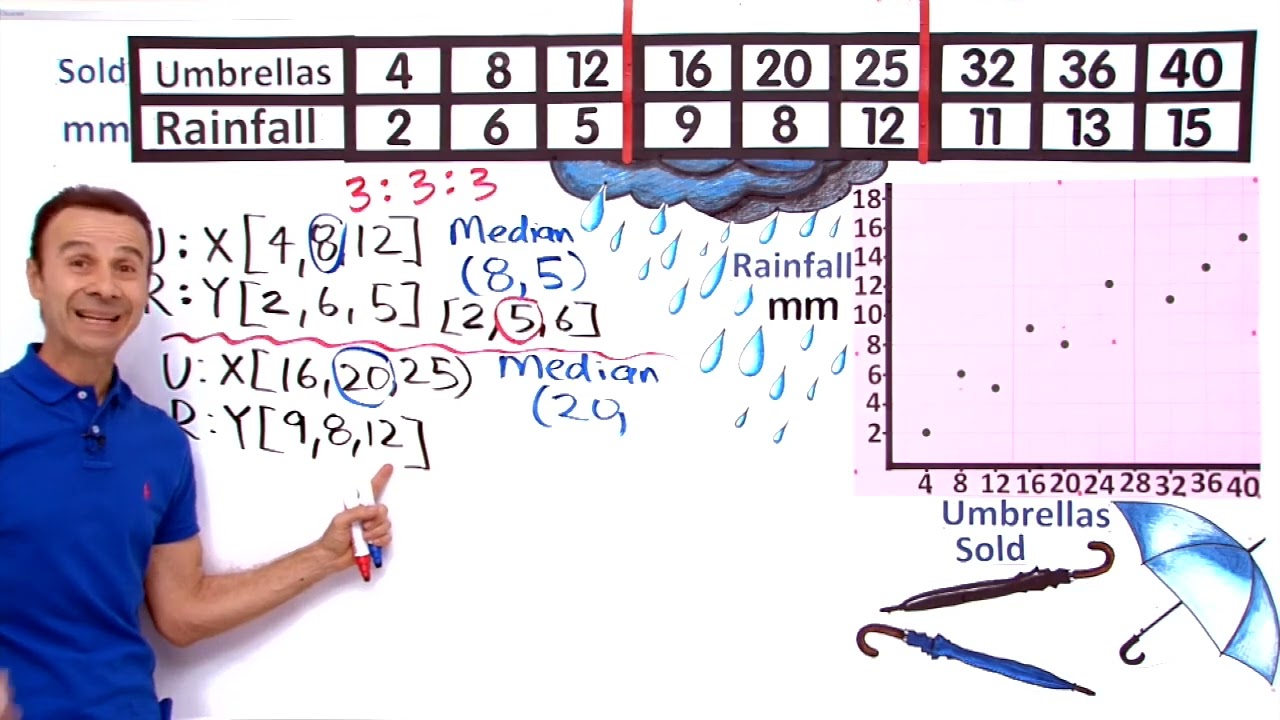 Sold Umbrellas 4 8 12 16 20 25 32 36 40
mm Rainfall 2 6 5 9 8 12 11 13 15
3:3:3
U: X [4, 8, 12] Median
(8,5)
R: Y [2, 6, 5] [2, 5, 6]
U: X [16, 20, 25) Median
(20,
R: Y [9, 8, 12]
Rainfall
mm
18
16
14
12
10
8
6
4
2
4 8 12 16 20 24 28 32 36 40
Umbrellas
Sold